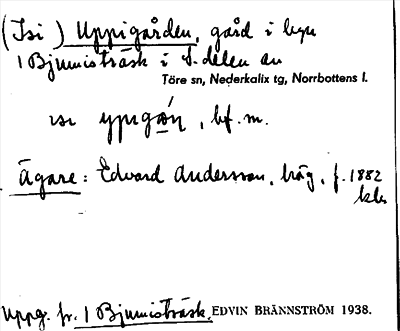 (Isi) Uppigården, gård i byn
1 Bjumisträsk i S. delen av
Töre sn, Nederkalix tg, Norrbottens l.
ypigǻn, bf. m.
Ägare: Edvard Andersson, häg, f. 1882
Uppg. fr. 1 Bjumisträsk. EDVIN BRÄNNSTRÖM 1938.